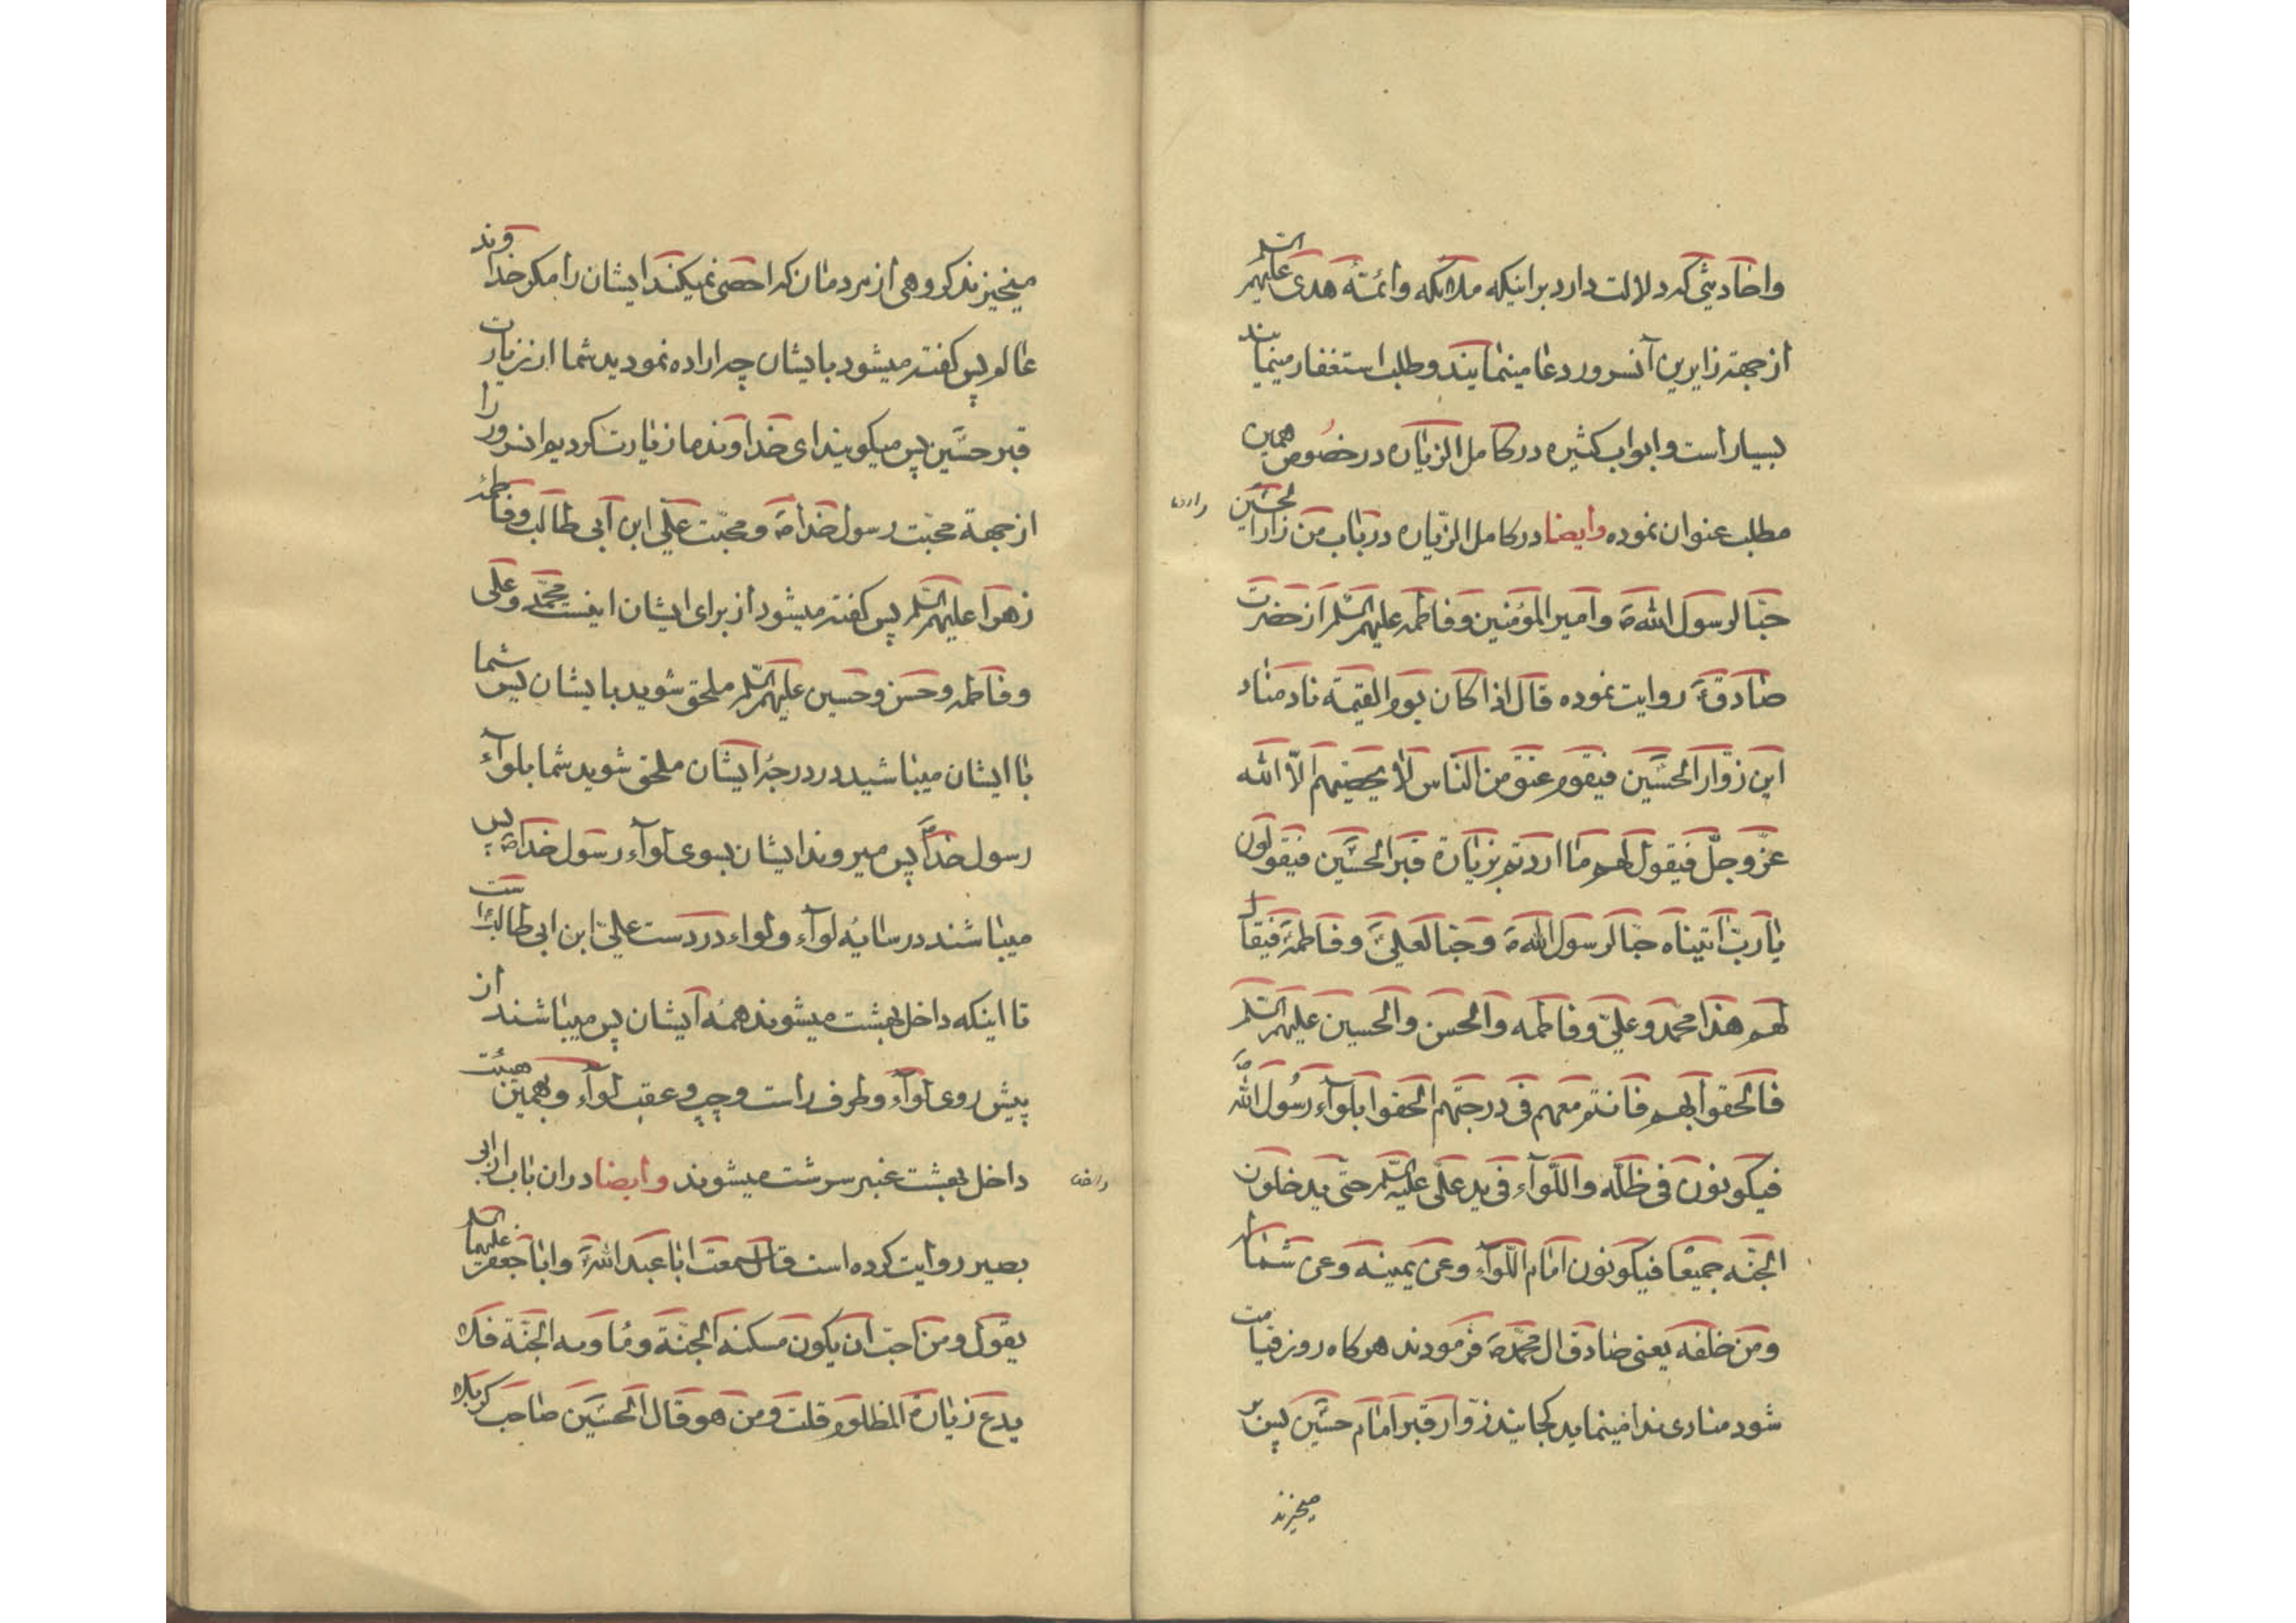 واحادیثی که دلالت دارد بر اینکه ملائکه وائمّهٔ هدی علیهم السّلم
از جهة زایرین آنسرور دعا مینمایند وطلب استغفار مینمایند
بسیار است وابواب کثیره در کامل الزیاره در خصوص همین
مطلب عنوان نموده وایضا در کامل الزّیاره در باب من زار الحسین
حبّا لرسول الله ص وامیر المؤمنین وفاطمه علیهم السّلم از حضرت
صادق ع روایت نموده قال اذا کان یوم القیمة ناد مناد
این زوّار الحسین فیقوم عنق من النّاس لا یحصیهم الّا الله
عزّ وجلّ فیقول لهم ما اردتم بزیارة قبر الحسین فیقولون
یا ربّ اتیناه حبّا لرسول الله ص وحبّا لعلیّ وفاطمة فیقال
لهم هذا محمّد وعلیّ وفاطمه والحسن والحسین علیهم السّلم
فالحقوا بهم فانتم معهم فی درجتهم الحقوا بلوآء رسول الله ص
فیکونون فی ظلّه واللّوآء فی ید علیّ علیه السّلم حتّی یدخلون
الجنّه جمیعا فیکونون امام اللّوآء وعن یمینه وعن شماله
ومن خلفه یعنی صادق ال محمّد ص فرمودند هرکاه روز قیامت
شود منادی ندا مینماید کجایند زوّار قبر امام حسین پس بر
میخیزند
میخیزند کروهی از مردمان که احصی نمیکند ایشان را مکر خداوند
عالم پس کفته میشود بایشان چه اراده نمودید شما از زیارت
قبر حسین پس میکویند ای خداوند ما زیارت کردیم انسرور را
از جهة محبّت رسول خدا ص ومحبّت علی ابن ابی طالب وفاطمهٔ
زهرا علیهم السّلم پس کفته میشود از برای ایشان اینست محمّد وعلی
وفاطمه وحسن وحسین علیهم السّلم ملحق شوید بایشان پس شما
با ایشان میباشید در درجهٔ ایشان ملحق شوید شما بلوآء
رسول خدا ص پس میروند ایشان بسوی لوآء رسول خدا ص پس
میباشند در سایهٔ لوآء ولواء در دست علیّ ابن ابی طالب است
تا اینکه داخل بهشت میشوند همهٔ ایشان پس میباشند از
پیش روی لوآء وطرف راست وچپ وعقب لوآء وبهمین هیئت
داخل بهشت عنبر سرشت میشوند وایضا در ان باب از ابی
بصیر روایت کرده است قال سمعت ابا عبد الله ع وابا جعفر علیهما السّلم
یقول ومن احبّ ان یکون مسکنه الجنّة ومأویه الجنّة فلا
یدع زیارة المظلوم قلت ومن هو قال الحسین صاحب کربلا